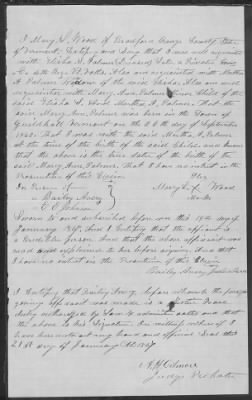 I Mary S. Wood of Bradford Orange County State
of Vermont. Certify and Say that I was well acquainted
with Elisha S. Palmer Deceased late a Private Co
C. 4th Regt Vt Vols. Also am acquainted with Martha
A. Palmer Widow of the said Elisha. Also am well
acquainted with Mary Ann Palmer Child of the
said Elisha S. and Martha A. Palmer. That the
said Mary Ann Palmer was born in the Town of
Guildhall Vermont on the day of September
186 . That I was with the said Martha A. Palmer
at the time of the birth of the said Child and know
that the above is the true date of the birth of the
said Mary Ann Palmer. That I have no interest in the
Prosecution of this Claim
In Presence of her
Bailey Avery Mary S. X Wood
E. C. Johnson Mark
Sworn to and subscribed before me this day of
January 1867. And I certify that the affiant is
a Credible Person. And that the above affidavit was
read and explained to her before signing. And that
I had no interest in the Prosecution of this Claim
Bailey Avery Justice Peace
I Certify that Bailey Avery before whom the
going affidavit was made is a Justice Peace
duly authorized by Law to administer oaths and that
the above is his Signature. In witness whereof I
have hereunto set my hand and official Seal this
21st day of January AD. 1867
Judge Probate